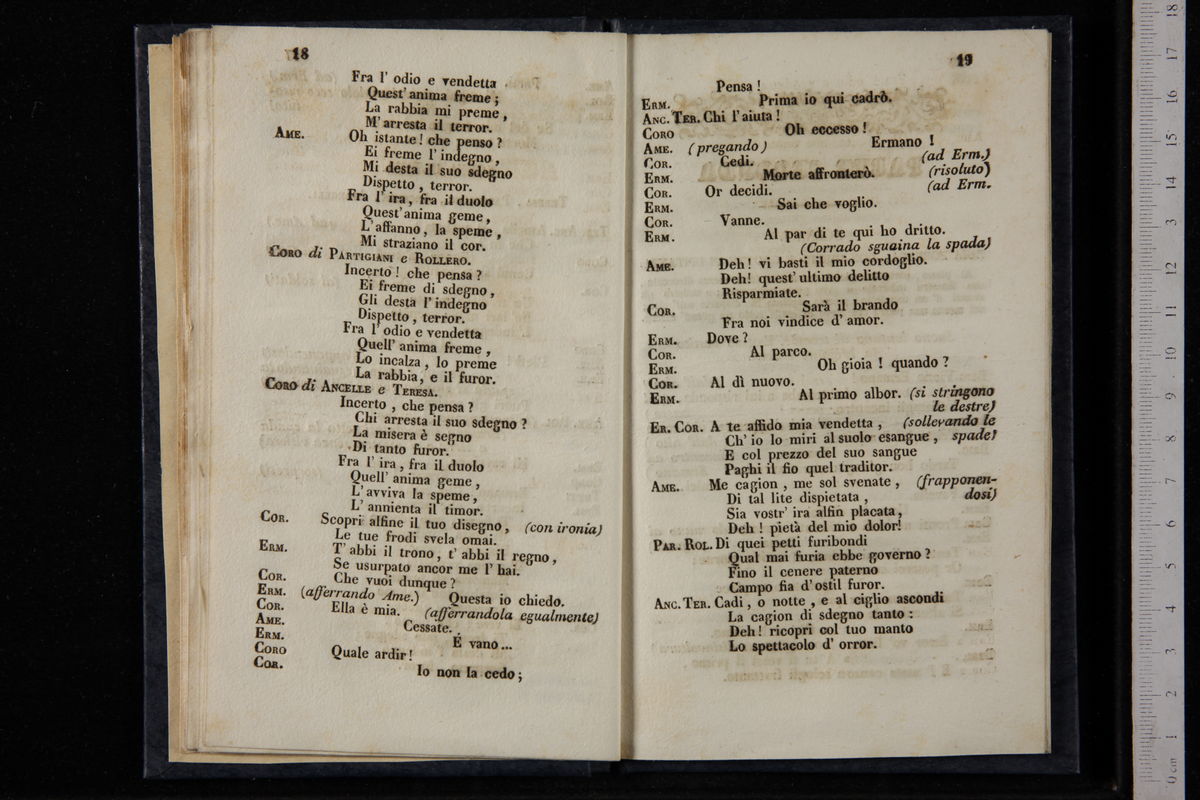 18
Fra l' odio e vendetta
Quest' anima freme ;
La rabbia mi preme ,
M' arresta il terror.
AME. Oh istante ! che penso ?
Ei freme l' indegno ,
Mi desta il suo sdegno
Dispetto , terror.
Fra l' ira , fra il duolo
Quest' anima geme ,
L' affanno , la speme ,
Mi straziano il cor.
CORO di PARTIGIANI e ROLLERO.
Incerto ! che pensa ?
Ei freme di sdegno ,
Gli desta l' indegno
Dispetto , terror.
Fra l' odio e vendetta
Quell' anima freme ,
Lo incalza , lo preme
La rabbia , e il furor.
CORO di ANCELLE e TERESA.
Incerto , che pensa ?
Chi arresta il suo sdegno ?
La misera è segno
Di tanto furor.
Fra l' ira , fra il duolo
Quell' anima geme ,
L' avviva la speme ,
L' annienta il timor.
COR. Scopri alfine il tuo disegno , (con ironia)
Le tue frodi svela omai.
ERM. T' abbi il trono , t' abbi il regno ,
Se usurpato ancor me l' hai.
COR. Che vuoi dunque ?
ERM. (afferrando Ame.) Questa io chiedo.
COR. Ella è mia. (afferrandola egualmente)
AME. Cessate..
ERM. È vano...
CORO Quale ardir !
COR. Io non la cedo ;
19
Pensa !
ERM. Prima io qui cadrò.
ANC. TER. Chi l' aiuta !
CORO Oh eccesso !
AME. (pregando) Ermano !
COR. Cedi. (ad Erm.)
ERM. Morte affronterò. (risoluto)
COR. Or decidi. (ad Erm.
ERM. Sai che voglio.
COR. Vanne.
ERM. Al par di te qui ho dritto.
(Corrado sguaina la spada)
AME. Deh ! vi basti il mio cordoglio.
Deh ! quest' ultimo delitto
Risparmiate.
COR. Sarà il brando
Fra noi vindice d' amor.
ERM. Dove ?
COR. Al parco.
ERM. Oh gioia ! quando ?
COR. Al dì nuovo.
ERM. Al primo albor. (si stringono
le destre)
ER. COR. A te affido mia vendetta , (sollevando le
Ch' io lo miri al suolo esangue , spade)
E col prezzo del suo sangue
Paghi il fio quel traditor.
AME. Me cagion , me sol svenate , (frapponen-
Di tal lite dispietata , dosi)
Sia vostr' ira alfin placata ,
Deh ! pietà del mio dolor!
PAR. ROL. Di quei petti furibondi
Qual mai furia ebbe governo ?
Fino il cenere paterno
Campo fia d' ostil furor.
ANC. TER. Cadi , o notte , e al ciglio ascondi
La cagion di sdegno tanto :
Deh ! ricopri col tuo manto
Lo spettacolo d' orror.
18
17
16
15
14
13
12
11
10
9
8
7
6
5
4
3
2
1
0 cm